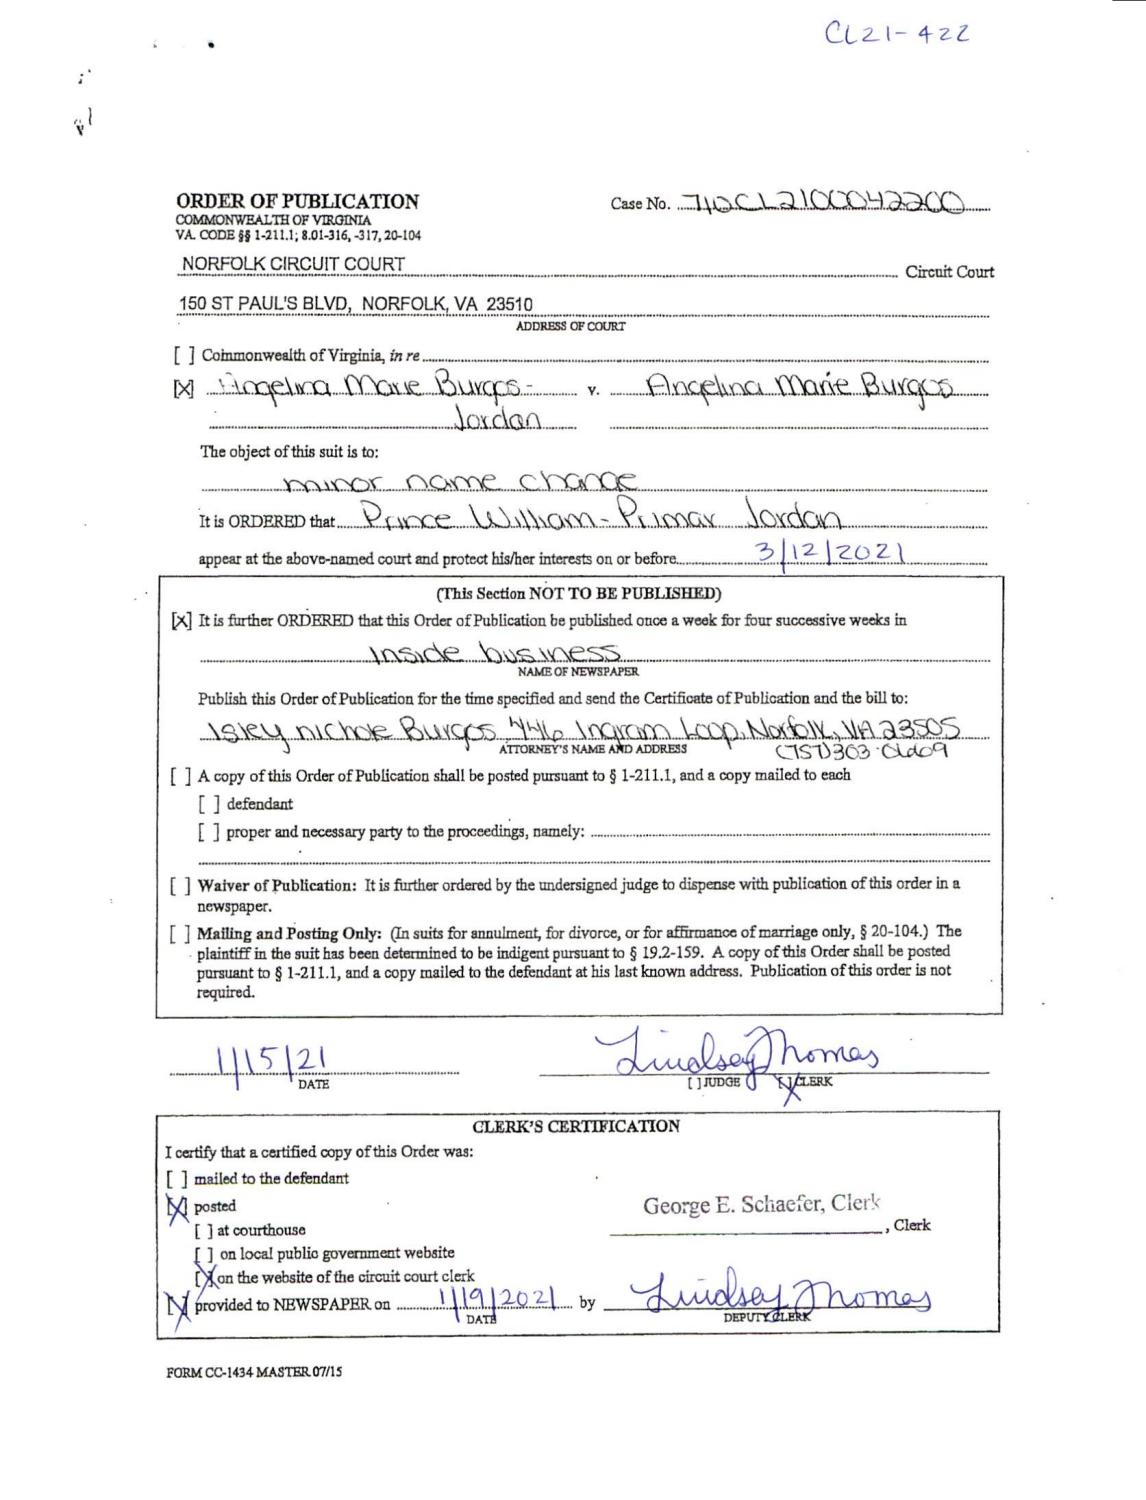 CL21-422
ORDER OF PUBLICATION
Case No. 710CL2100042200
COMMONWEALTH OF VIRGINIA
VA. CODE §§ 1-211.1; 8.01-316, -317, 20-104
NORFOLK CIRCUIT COURT Circuit Court
150 ST PAUL'S BLVD, NORFOLK, VA 23510
ADDRESS OF COURT
[ ] Commonwealth of Virginia, in re
[X] Angelina Marie Burgos- v. Angelina Marie Burgos
Jordan
The object of this suit is to:
minor name change
It is ORDERED that Prince William-Primar Jordan
appear at the above-named court and protect his/her interests on or before 3/12/2021
(This Section NOT TO BE PUBLISHED)
[X] It is further ORDERED that this Order of Publication be published once a week for four successive weeks in
Inside business
NAME OF NEWSPAPER
Publish this Order of Publication for the time specified and send the Certificate of Publication and the bill to:
Isley nichole Burgos 446 Ingram Loop, Norfolk, VA 23505
ATTORNEY'S NAME AND ADDRESS
[ ] A copy of this Order of Publication shall be posted pursuant to § 1-211.1, and a copy mailed to each
[ ] defendant
[ ] proper and necessary party to the proceedings, namely:
[ ] Waiver of Publication: It is further ordered by the undersigned judge to dispense with publication of this order in a
newspaper.
[ ] Mailing and Posting Only: (In suits for annulment, for divorce, or for affirmance of marriage only, § 20-104.) The
plaintiff in the suit has been determined to be indigent pursuant to § 19.2-159. A copy of this Order shall be posted
pursuant to § 1-211.1, and a copy mailed to the defendant at his last known address. Publication of this order is not
required.
1/15/21 Lindsey Thomas
DATE [ ] JUDGE [X] CLERK
CLERK'S CERTIFICATION
I certify that a certified copy of this Order was:
[ ] mailed to the defendant
[X] posted
George E. Schaefer, Clerk
[ ] at courthouse , Clerk
[ ] on local public government website
[X] on the website of the circuit court clerk
[X] provided to NEWSPAPER on 1/19/2021 by Lindsey Thomas
DATE DEPUTY CLERK
FORM CC-1434 MASTER 07/15